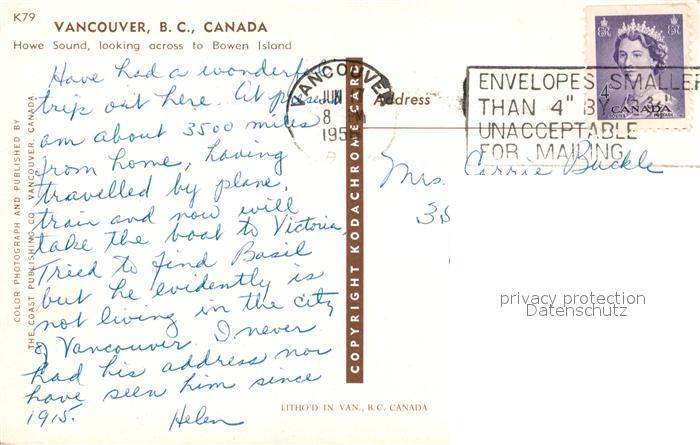 K79
VANCOUVER, B. C., CANADA
Howe Sound, looking across to Bowen Island
Have had a wonderful
trip out here. At present
am about 3500 miles
from home, having
travelled by plane,
train and now will
take the boat to Victoria.
Tried to find Basil
but he evidently is
not living in the city
of Vancouver. I never
had his address nor
have seen him since
1915. Helen
COLOR PHOTOGRAPH AND PUBLISHED BY
THE COAST PUBLISHING CO. VANCOUVER, CANADA
COPYRIGHT KODACHROME CARD
VANCOUVER
JUN
8
195
ENVELOPES SMALLER
THAN 4" BY
UNACCEPTABLE
FOR MAILING
4
CANADA
Address
Mrs. Carrie Buckle
privacy protection
Datenschutz
LITHO'D IN VAN., B.C. CANADA